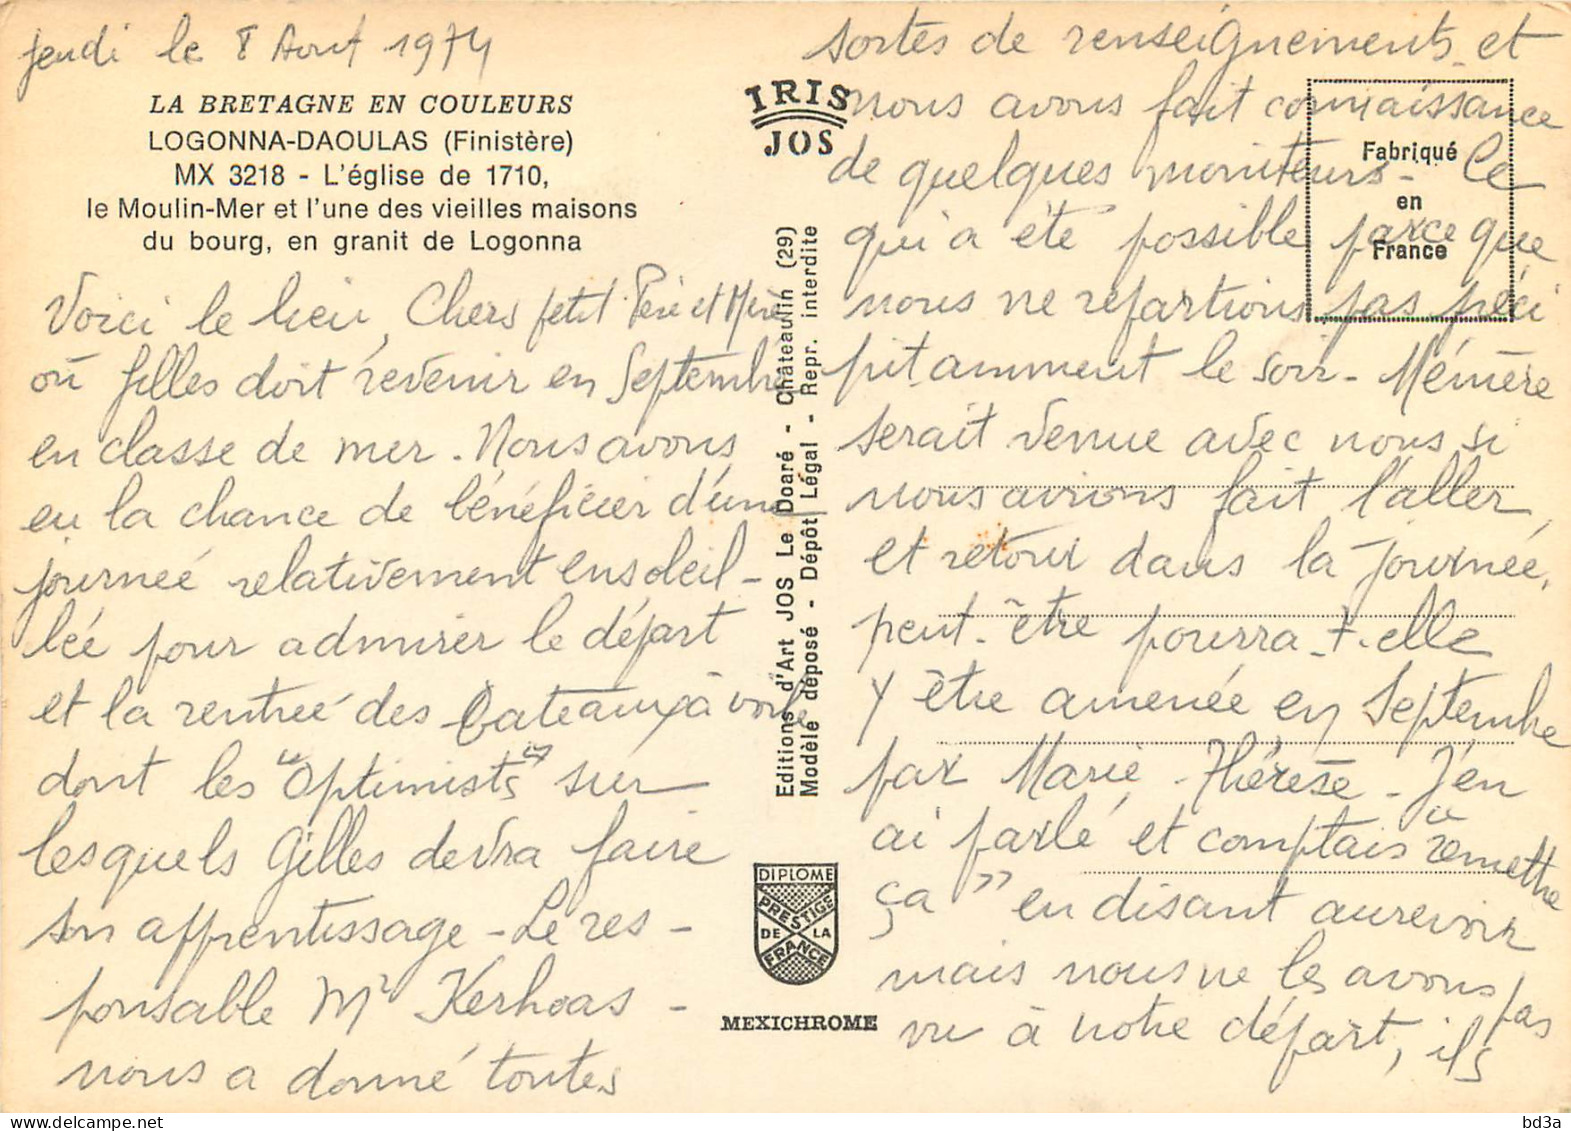 Jeudi le 8 Aout 1974
LA BRETAGNE EN COULEURS
LOGONNA-DAOULAS (Finistère)
MX 3218 - L'église de 1710,
le Moulin-Mer et l'une des vieilles maisons
du bourg, en granit de Logonna
Voici le lieu, Chers petit Père et Mère
où Gilles doit revenir en Septembre
en classe de mer. Nous avons
eu la chance de bénéficier d'une
journée relativement ensoleil-
lée pour admirer le départ
et la rentrée des bateaux à voile
dont les "Optimists" sur
lesquels Gilles devra faire
son apprentissage - Le res-
ponsable Mr Kerhoas -
nous a donné toutes
IRIS
JOS
Editions d'Art JOS Le Doaré - Châteaulin (29)
Modèle déposé - Dépôt Légal - Repr. interdite
DIPLOME
PRESTIGE
DE LA
FRANCE
MEXICHROME
Fabriqué
en
France
sortes de renseignements et
nous avons fait connaissance
de quelques moniteurs - Ce
qui a été possible parce que
nous ne repartions pas préci
pitamment le soir - Mémère
serait venue avec nous si
nous avions fait l'aller
et retour dans la journée,
peut-être pourra-t-elle
y être amenée en Septembre
par Marie-Thérèse - J'en
ai parlé et comptais "remettre
ça" en disant aurevoir
mais nous ne les avons pas
vu à notre départ, ils
bd3a